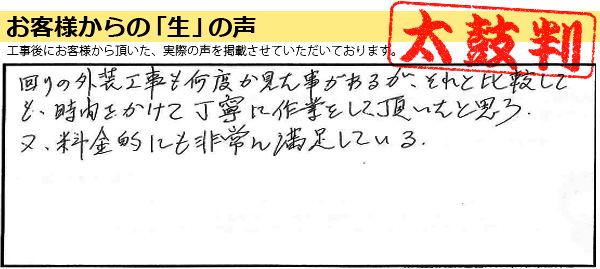 お客様からの「生」の声
太鼓判
工事後にお客様から頂いた、実際の声を掲載させていただいております。
回りの外装工事も何度か見た事があるが、それと比較して
も、時間をかけて丁寧に作業をして頂いたと思う.
又、料金的にも非常に満足している.